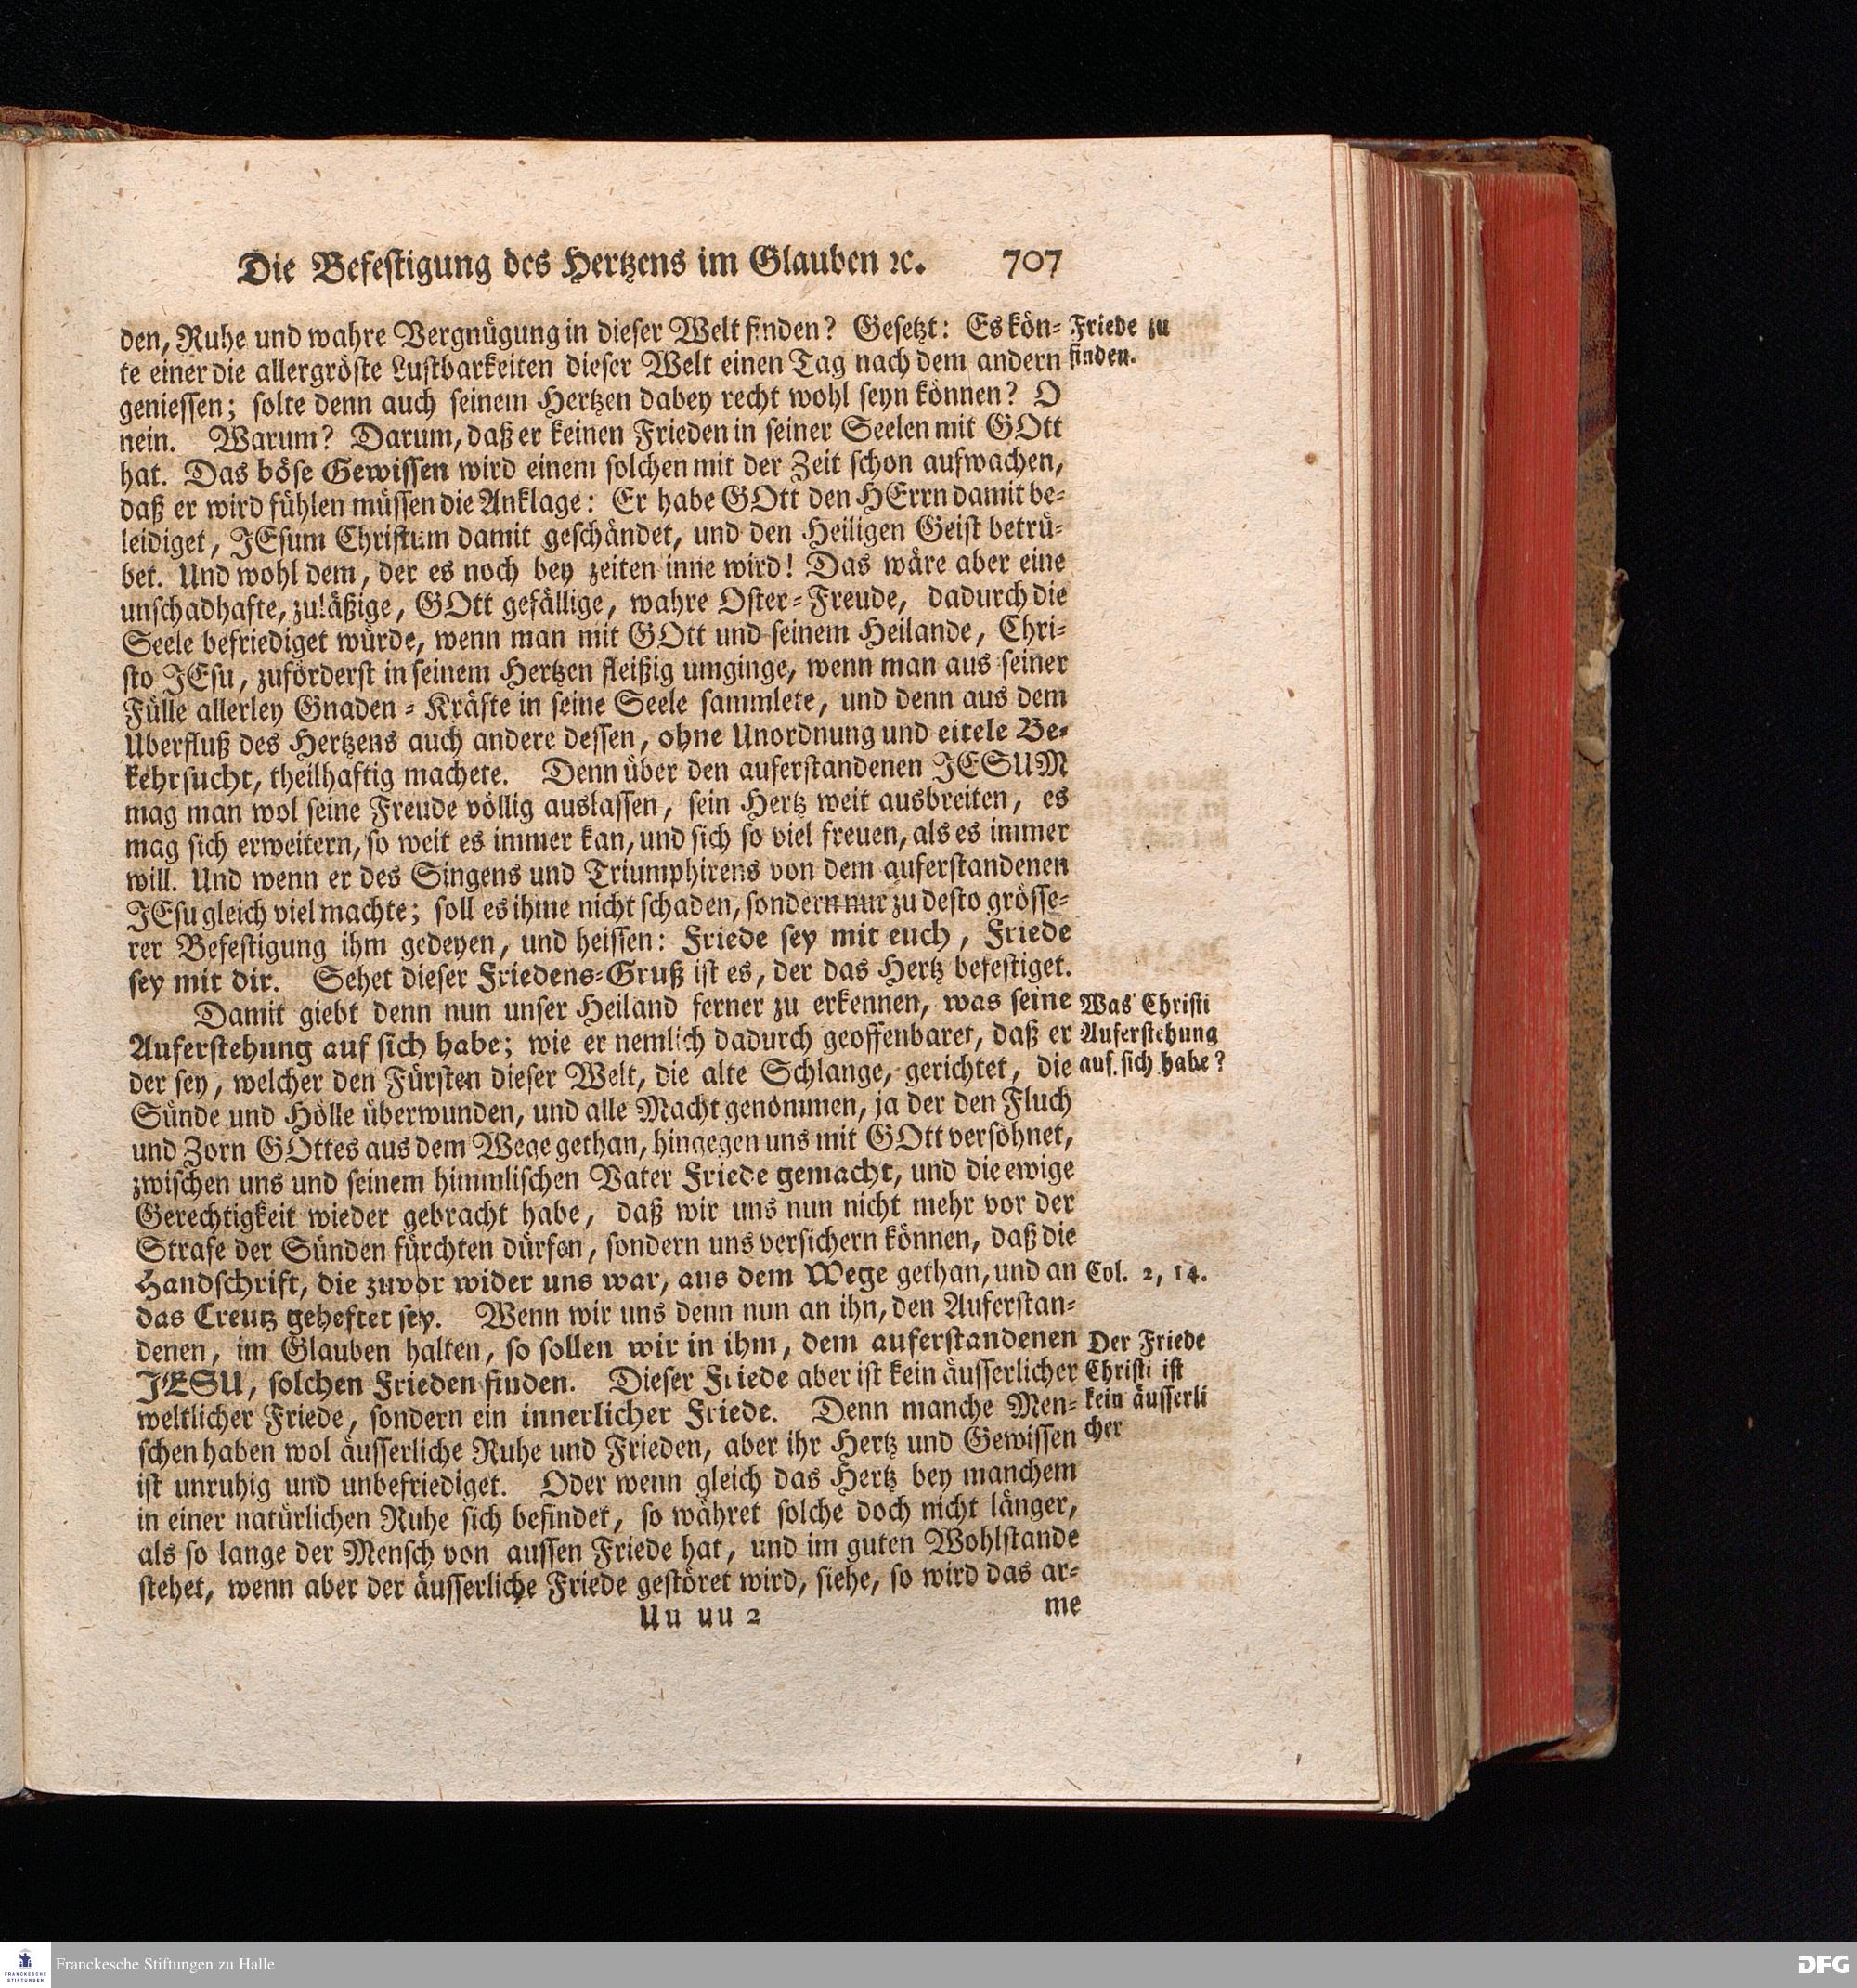 Die Befestigung des Hertzens im Glauben ꝛc. 707
den, Ruhe und wahre Vergnügung in dieser Welt finden? Gesetzt: Es kön-
te einer die allergröste Lustbarkeiten dieser Welt einen Tag nach dem andern
geniessen; solte denn auch seinem Hertzen dabey recht wohl seyn können? O
nein. Warum? Darum, daß er keinen Frieden in seiner Seelen mit GOtt
hat. Das böse Gewissen wird einem solchen mit der Zeit schon aufwachen,
daß er wird fühlen müssen die Anklage: Er habe GOtt den HErrn damit be-
leidiget, JEsum Christum damit geschändet, und den Heiligen Geist betrü-
bet. Und wohl dem, der es noch bey zeiten inne wird! Das wäre aber eine
unschadhafte, zuläßige, GOtt gefällige, wahre Oster-Freude, dadurch die
Seele befriediget würde, wenn man mit GOtt und seinem Heilande, Chri-
sto JEsu, zuförderst in seinem Hertzen fleißig umginge, wenn man aus seiner
Fülle allerley Gnaden-Kräfte in seine Seele sammlete, und denn aus dem
Uberfluß des Hertzens auch andere dessen, ohne Unordnung und eitele Be-
kehrsucht, theilhaftig machete. Denn über den auferstandenen JESUM
mag man wol seine Freude völlig auslassen, sein Hertz weit ausbreiten, es
mag sich erweitern, so weit es immer kan, und sich so viel freuen, als es immer
will. Und wenn er des Singens und Triumphirens von dem auferstandenen
JEsu gleich viel machte; soll es ihme nicht schaden, sondern nur zu desto grösse-
rer Befestigung ihm gedeyen, und heissen: Friede sey mit euch, Friede
sey mit dir. Sehet dieser Friedens-Gruß ist es, der das Hertz befestiget.
Damit giebt denn nun unser Heiland ferner zu erkennen, was seine
Auferstehung auf sich habe; wie er nemlich dadurch geoffenbaret, daß er
der sey, welcher den Fürsten dieser Welt, die alte Schlange, gerichtet, die
Sünde und Hölle überwunden, und alle Macht genommen, ja der den Fluch
und Zorn GOttes aus dem Wege gethan, hingegen uns mit GOtt versöhnet,
zwischen uns und seinem himmlischen Vater Friede gemacht, und die ewige
Gerechtigkeit wieder gebracht habe, daß wir uns nun nicht mehr vor der
Strafe der Sünden fürchten dürfen, sondern uns versichern können, daß die
Handschrift, die zuvor wider uns war, aus dem Wege gethan, und an
das Creutz geheftet sey. Wenn wir uns denn nun an ihn, den Auferstan-
denen, im Glauben halten, so sollen wir in ihm, dem auferstandenen
JESU, solchen Frieden finden. Dieser Friede aber ist kein äusserlicher
weltlicher Friede, sondern ein innerlicher Friede. Denn manche Men-
schen haben wol äusserliche Ruhe und Frieden, aber ihr Hertz und Gewissen
ist unruhig und unbefriediget. Oder wenn gleich das Hertz bey manchem
in einer natürlichen Ruhe sich befindet, so währet solche doch nicht länger,
als so lange der Mensch von aussen Friede hat, und im guten Wohlstande
stehet, wenn aber der äusserliche Friede gestöret wird, siehe, so wird das ar-
Uu uu 2 me
Friede zu
finden.
Was Christi
Auferstehung
auf sich habe?
Col. 2, 14.
Der Friede
Christi ist
kein äusserli
cher
FRANCKESCHE
STIFTUNGEN
Franckesche Stiftungen zu Halle
DFG